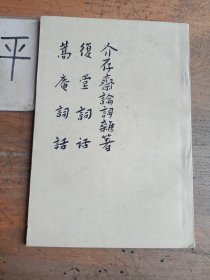 介存齋論詞雜著
復堂詞話
蒿庵詞話
平